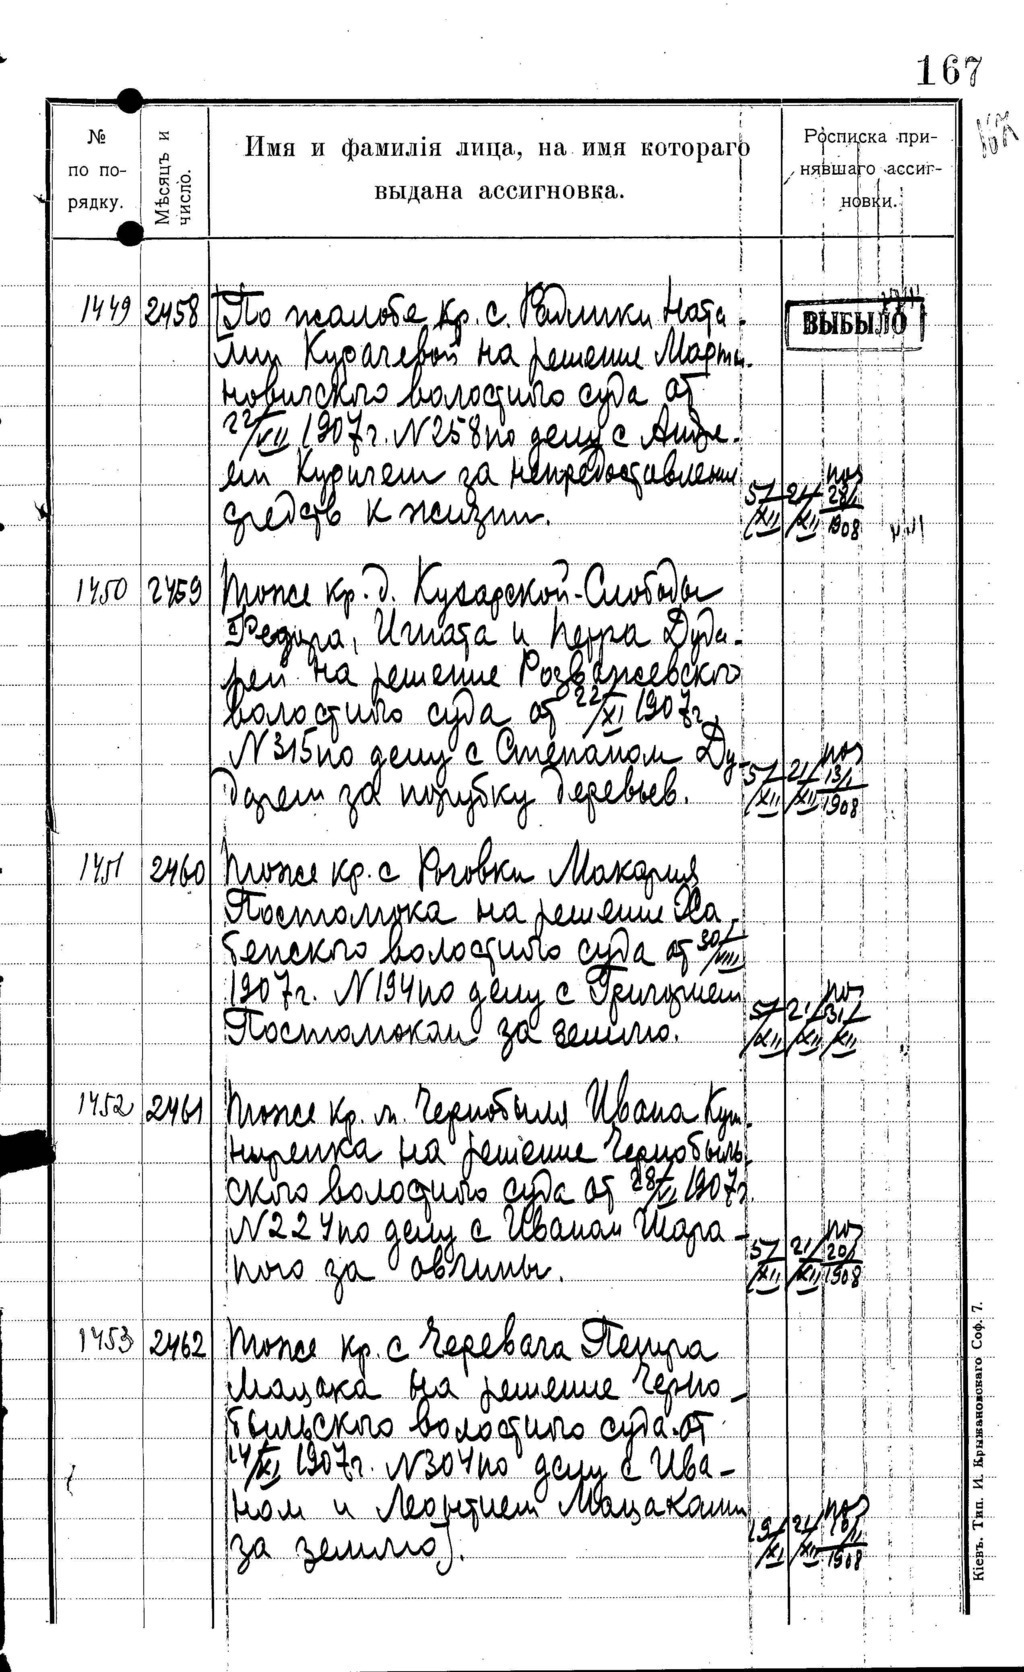 167
167
№ по по- рядку.
Мѣсяцъ и число.
Имя и фамилія лица, на имя котораго выдана ассигновка.
Росписка при- нявшаго ассиг- новки.
1449 2458 [По жалобе кр. с. Радинки Ната-
лии Кудачевой на решение Марти-
новичского волостного суда от
22/XII 1907г. N258 по делу с Андре-
ем за непредоставлении
средств к жизни. 5/XII 21/XII 28/I 1908
ВЫБЫЛО
1450 2459 тоже кр. д. Кухарской-Слободы
Федора, Игната и Петра Дуда-
рей на решение Розважевского
волостного суда от 22/XI 1907г.
N315 по делу с Степаном Ду-
дарем за порубку деревьев. 5/XII 21/XII 13/I 1908
1451 2460 тоже кр. с Роговки Макария
Постолюка на решение Ха-
бенского волостного суда от 30/VIII
1907г. N194 по делу с Григорием
Постолюком за землю. 5/XII 21/XII 31/XII
1452 2461 тоже кр. м. Чернобыля Ивана Куш-
ниренка на решение Чернобыль-
ского волостного суда от 28/XI 1907г.
N224 по делу с Иваном Шара-
пого за овчины. 5/XII 21/XII 20/I 1908
1453 2462 тоже кр. с Черевача Петра
Мацака на решение Черно-
быльского волостного суда от
14/XI 1907г. N304 по делу с Ива-
ном и Леонтием Мацаками
за землю]. 19/XI 21/XII 1908
Кіевъ. Тип. И. Крыжановскаго Соф. 7.